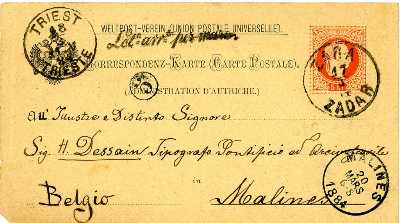 WELTPOST-VEREIN (UNION POSTALE UNIVERSELLE).
TRIEST
18
TRIESTE
CORRESPONDENZ-KARTE (CARTE POSTALE).
ZARA
17
ZADAR
(ADMINISTRATION D'AUTRICHE.)
All' Illustre e Distinto Signore
Sig. H. Dessain Tipografo Pontificio ed
in
Belgio Malines
MALINES
20
MARS
1884